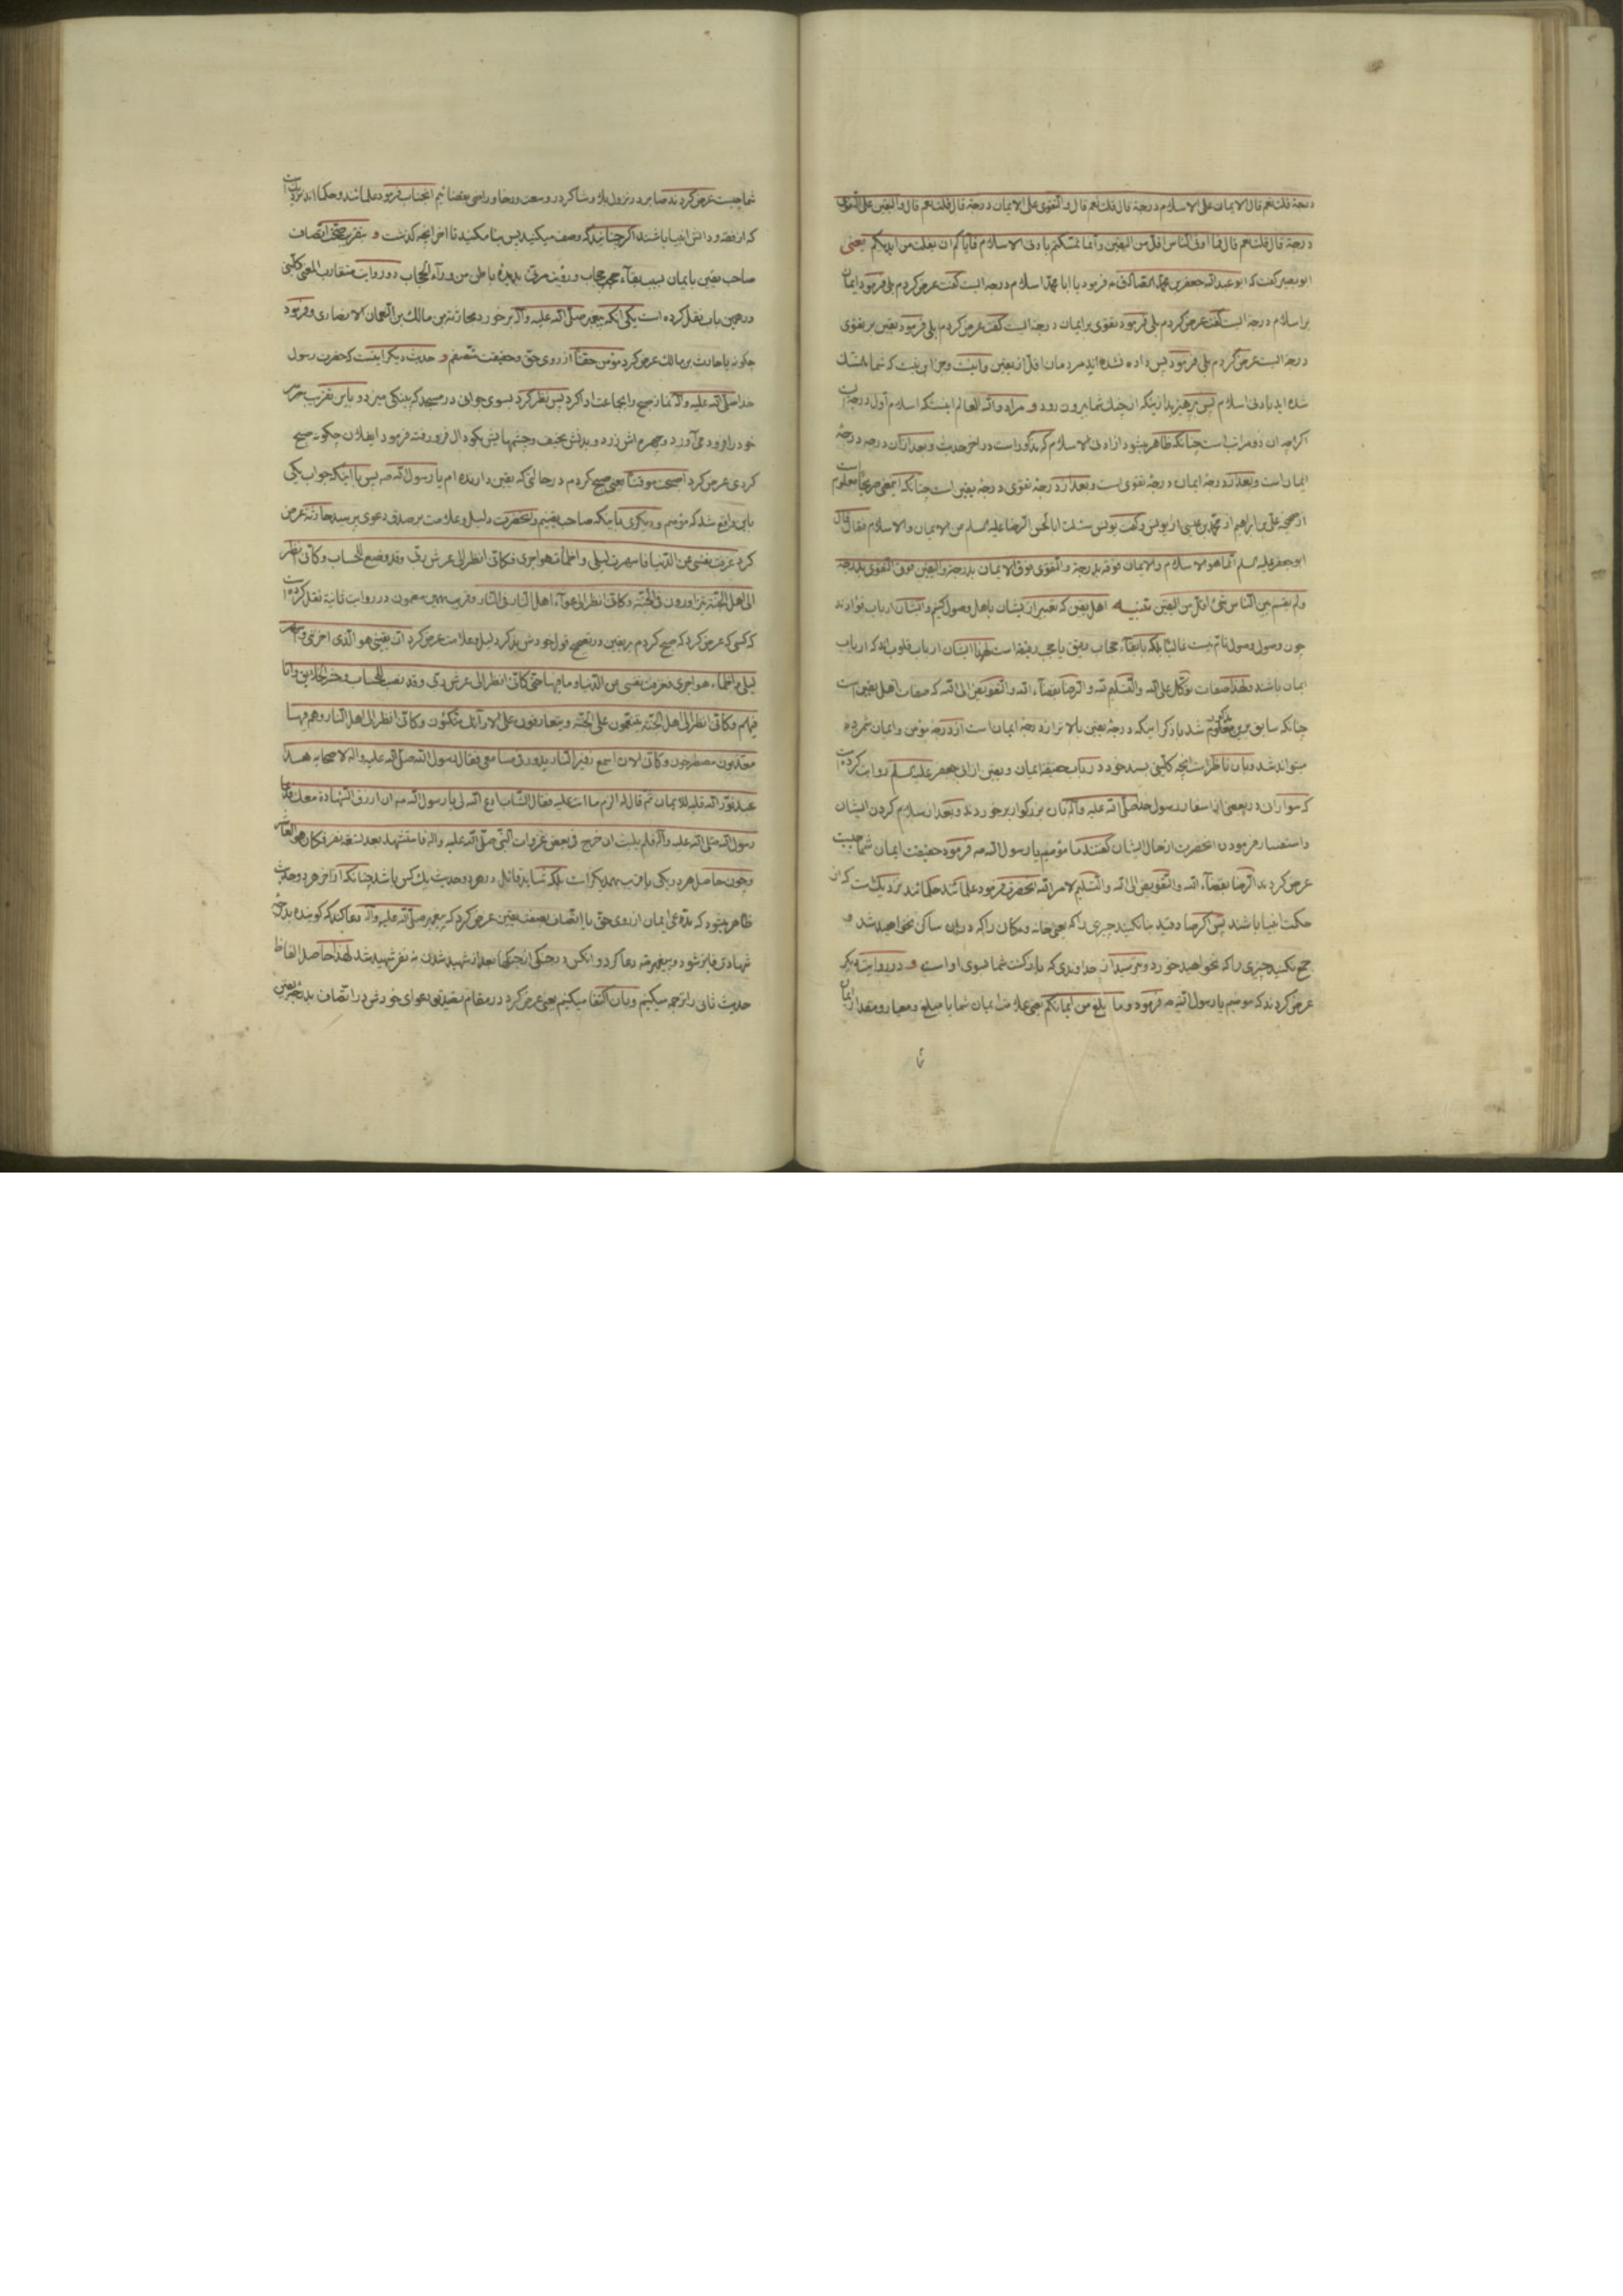 درجة قلت نعم قال الایمان علی الاسلام درجة قال قلت نعم قال والتقوی علی الایمان درجة قال قلت نعم قال والیقین علی التقوی
درجة قال قلت نعم قال فما اوتی الناس اقل من الیقین وانما تمسکتم بادنی الاسلام فایاکم ان ینفلت من ایدیکم یعنی
ابوبصیر گفت که ابو عبدالله جعفر بن محمد الصادق ع فرمود یا ابا محمد اسلام درجه ایست گفت عرض کردم بلی فرمود ایمان
بر اسلام درجه ایست گفت عرض کردم بلی فرمود تقوی بر ایمان درجه ایست گفت عرض کردم بلی فرمود یقین بر تقوی
درجه ایست عرض کردم بلی فرمود پس داده نشده اند مردمان اقل از یقین و این نیست که شما متمسک
شده اید بادنی اسلام پس بپرهیزید از اینکه از چنگ شما بیرون رود و مراد والله العالم اینستکه اسلام اول درجه است
اگرچه ان ذو مراتب است چنانکه ظاهر میشود از ادنی الاسلام که مذکور است در اخر حدیث و بعد از ان درجه درجهٔ
ایمان است و بعد از درجهٔ ایمان درجهٔ تقوی است و بعد از درجهٔ تقوی درجهٔ یقین است چنانکه اینمعنی صریحا معلوم است
از صحیحه علی بن ابراهیم از محمد بن عیسی از یونس و گفت یونس سئلت ابا الحسن الرضا علیه السلم عن الایمان والاسلام فقال قال
ابو جعفر علیه السلم انما هو الاسلام والایمان فوقه بدرجة والتقوی فوق الایمان بدرجة والیقین فوق التقوی بدرجة
ولم یقسم بین الناس شئ اقل من الیقین تنبیه اهل یقین که تعبیر از ایشان باهل وصول کنیم و ایشان ارباب فؤادند
چون وصول وصول تام نیست غالبا بلکه با بقآء حجاب رقیق یا حجب رقیقه است لهذا ایشان ارباب قلوب اند که ارباب
ایمان باشند ولهذا صفات توکل علی الله والتسلیم لله والرضا بقضآء الله والتفویض الی الله که صفات اهل یقین است
چنانکه سابق برین معلوم شد با ذکر اینکه درجهٔ یقین بالاتر از درجهٔ ایمان است از درجهٔ مؤمن و ایمان شمرده
میتواند شد و بان ناظر است انچه کلینی بسند خود در باب حقیقة ایمان و یقین از ابی جعفر علیه السلم روایت کرده است
که سواران در بعضی از اسفار رسول خدا صلی الله علیه واله بان بزرگوار برخوردند و بعد از سلام کردن ایشان
و استفسار فرمودن انحضرت از حال ایشان گفتند ما مؤمنیم یا رسول الله ص فرمود حقیقت ایمان شما چیست
عرض کردند الرضا بقضآء الله والتفویض الی الله والتسلیم لامر الله انحضرت فرمود علمااند حکمااند نزدیکست که از
حکمت انبیا باشند پس اگر صادقید بنا نکنید چیزی را که یعنی خانه و مکان را که در ان ساکن نخواهید شد و
جمع نکنید چیزی را که نخواهید خورد و بترسید از خداوندی که بازگشت شما بسوی او است و در روایت دیگر
عرض کردند که مومنیم یا رسول الله ص فرمود وما بلغ من ایمانکم یعنی علامت ایمان شما یا مبلغ و معیار و مقدار ایمان
شما چیست عرض کردند صابر در نزول بلا و شاکر در وسعت و رخا و راضی بقضائیم انجناب فرمود علمااند و حکمااند نزدیک است
که از فقه و دانش انبیا باشند اگر چنانید که وصف میکنید پس بنا مکنید تا اخر انچه گذشت و بتقریب اتصاف
صاحب یقین بایمان بسبب بقآء حجب حجاب و رؤیت مرقی بدیدهٔ باطن من ورآء الحجاب دو روایت متقارب المعنی کلینی
در همین باب نقل کرده است یکی انکه پیغمبر صلی الله علیه واله برخورد بحارثة بن مالک بن النعمان الانصاری و فرمود
چگونه یا حارث بن مالک عرض کرد مؤمن حقا از روی حق و حقیقت متصفم و حدیث دیگر اینست که حضرت رسول
خدا صلی الله علیه واله نماز صبح را بجماعت ادا کرد پس نظر کرد بسوی جوانی در مسجد که پینکی میزد و باین تقریب سر
خود را فرود می آورد و چهره اش زرد و بدنش نحیف و چشمهایش بگودال فرو رفته فرمود ایفلان چگونه صبح
کردی عرض کرد اصبحت موقنا یعنی صبح کردم در حالتی که یقین دارنده ام یا رسول الله ص پس با اینکه جواب یکی
باین واقع شد که مؤمنم و دیگری باینکه صاحب یقینم وانحضرت دلیل و علامت بر صدق دعوی پرسید حارثه عرض
کرد عزفت نفسی عن الدنیا فاسهرت لیلی واظمأت هواجری وکانی انظر الی عرش ربی وقد وضع للحساب وکانی انظر
الی اهل الجنة یتزاورون فی الجنة وکانی اسمع عوآء اهل النار فی النار و قریب بهمین مضمون در روایت ثانیه نقل کرده است
که کسی که عرض کرد که صبح کردم بر یقین در تصحیح قول خودش بذکر دلیل و علامت عرض کرد ان یقینی هو الذی احزننی واسهر
لیلی واظمآء هواجری فعزفت نفسی عن الدنیا وما فیها حتی کانی انظر الی عرش ربی وقد نصب للحساب وحشر الخلایق وانا
فیهم وکانی انظر الی اهل الجنة یتنعمون علی الجنة ویتعارفون علی الارآئک متکئون وکانی انظر الی اهل النار وهم فیها
معذبون مصطرخون وکانی الان اسمع زفیر النار یدور فی مسامعی فقال رسول الله صلی الله علیه واله لاصحابه هذا
عبد نور الله قلبه للایمان ثم قال له الزم ما انت علیه فقال الشاب ادع الله لی یا رسول الله ص ان ارزق الشهادة معک فدعا
رسول الله صلی الله علیه واله فلم یلبث ان خرج فی بعض غزوات النبی صلی الله علیه واله فاستشهد بعد تسعة نفر فکان هو العاشر
و چون حاصل هر دو یکی یا قریب بهمدیگر است بلکه شاید قائل در هر دو حدیث یک کس باشد چنانکه از اخر هر دو حدیث
ظاهر میشود که مدعی ایمان از روی حق با اتصاف بصفت یقین عرض کرد که پیغمبر صلی الله علیه واله دعا کند که گوینده بدرجهٔ
شهادت فایز شود و پیغمبر ص دعا کرد و انکس در جنگی از جنگها بعد از شهید شدن نه نفر شهید شد لهذا حاصل الفاظ
حدیث ثانی را ترجمه میکنیم و بان اکتفا میکنیم یعنی عرض کرد در مقام تصدیق دعوای خودش در اتصاف بدرجهٔ یقین